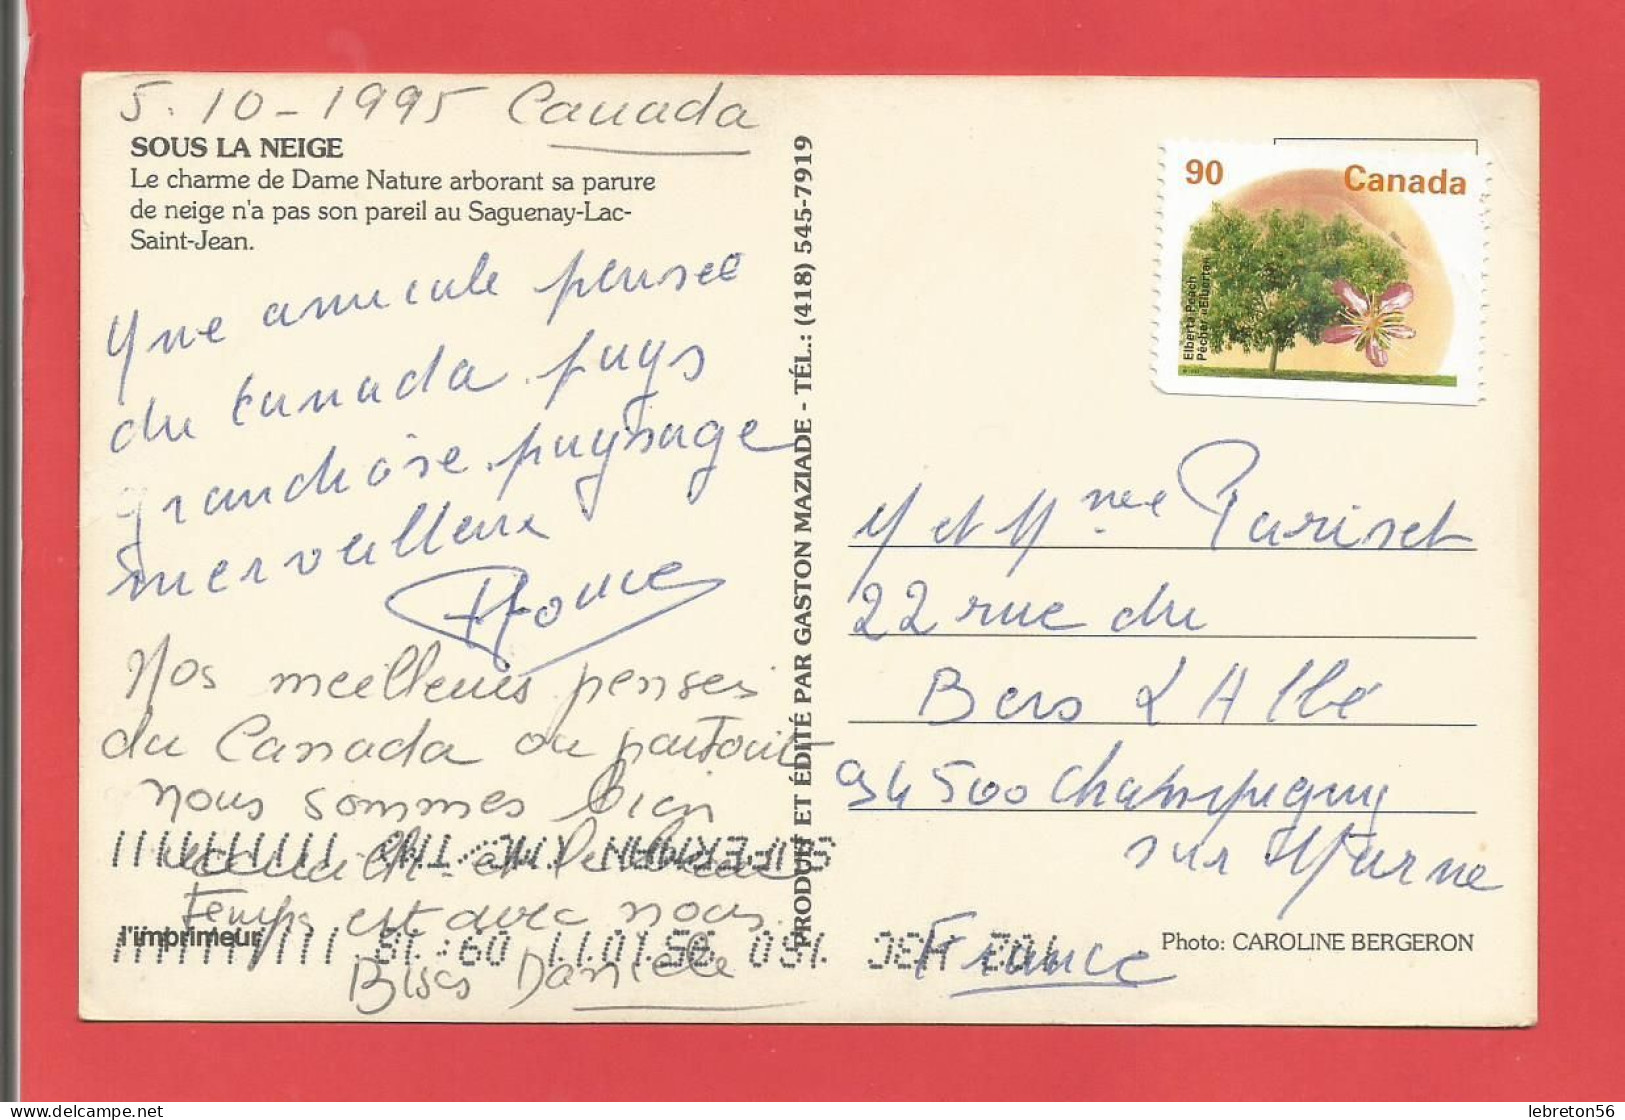 5.10-1995 Canada
SOUS LA NEIGE
Le charme de Dame Nature arborant sa parure
de neige n'a pas son pareil au Saguenay-Lac-
Saint-Jean.
Une amicale pensée
du Canada. pays
grandiose. paysage
merveilleux
Nos meilleurs penses
du Canada ou partout
nous sommes bien
et le beau
Temps est avec nous.
Bises Danièle
l'imprimeur
PRODUIT ET ÉDITÉ PAR GASTON MAZIADE - TÉL.: (418) 545-7919
90 Canada
Elberta Peach
Pêcher «Elberta»
M et Mme Pariset
22 rue du
Bois L'Abbé
94500 Champigny
sur Marne
France
Photo: CAROLINE BERGERON
lebreton56